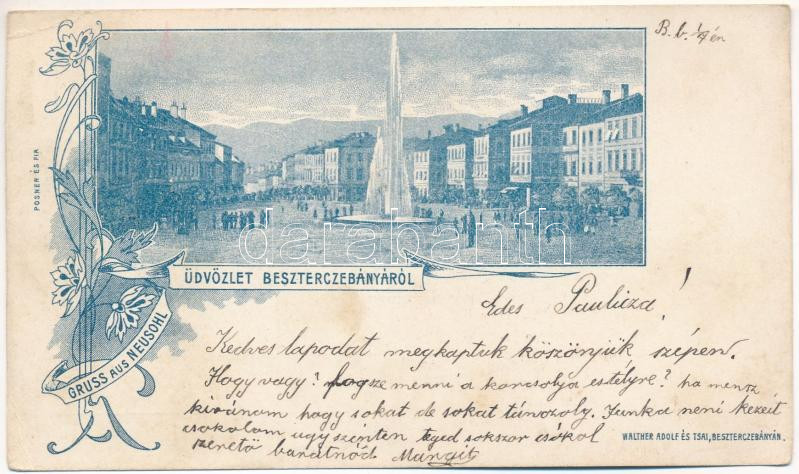 B. b. 1/9 én
POSNER ÉS FIA
darabanth
ÜDVÖZLET BESZTERCZEBÁNYÁRÓL
GRUSS AUS NEUSOHL
Édes Paulicza!
Kedves lapodat megkaptuk köszönjük szépen.
Hogy vagy? fogsz e menni a korcsolya estélyre? ha mensz
kivánom hogy sokat de sokat tánczolj. Janka neni kezeit
csokolom ugy szinten téged sokszor csókol
szerető barátnőd Margit
WALTHER ADOLF ÉS TSAI, BESZTERCZEBÁNYÁN.